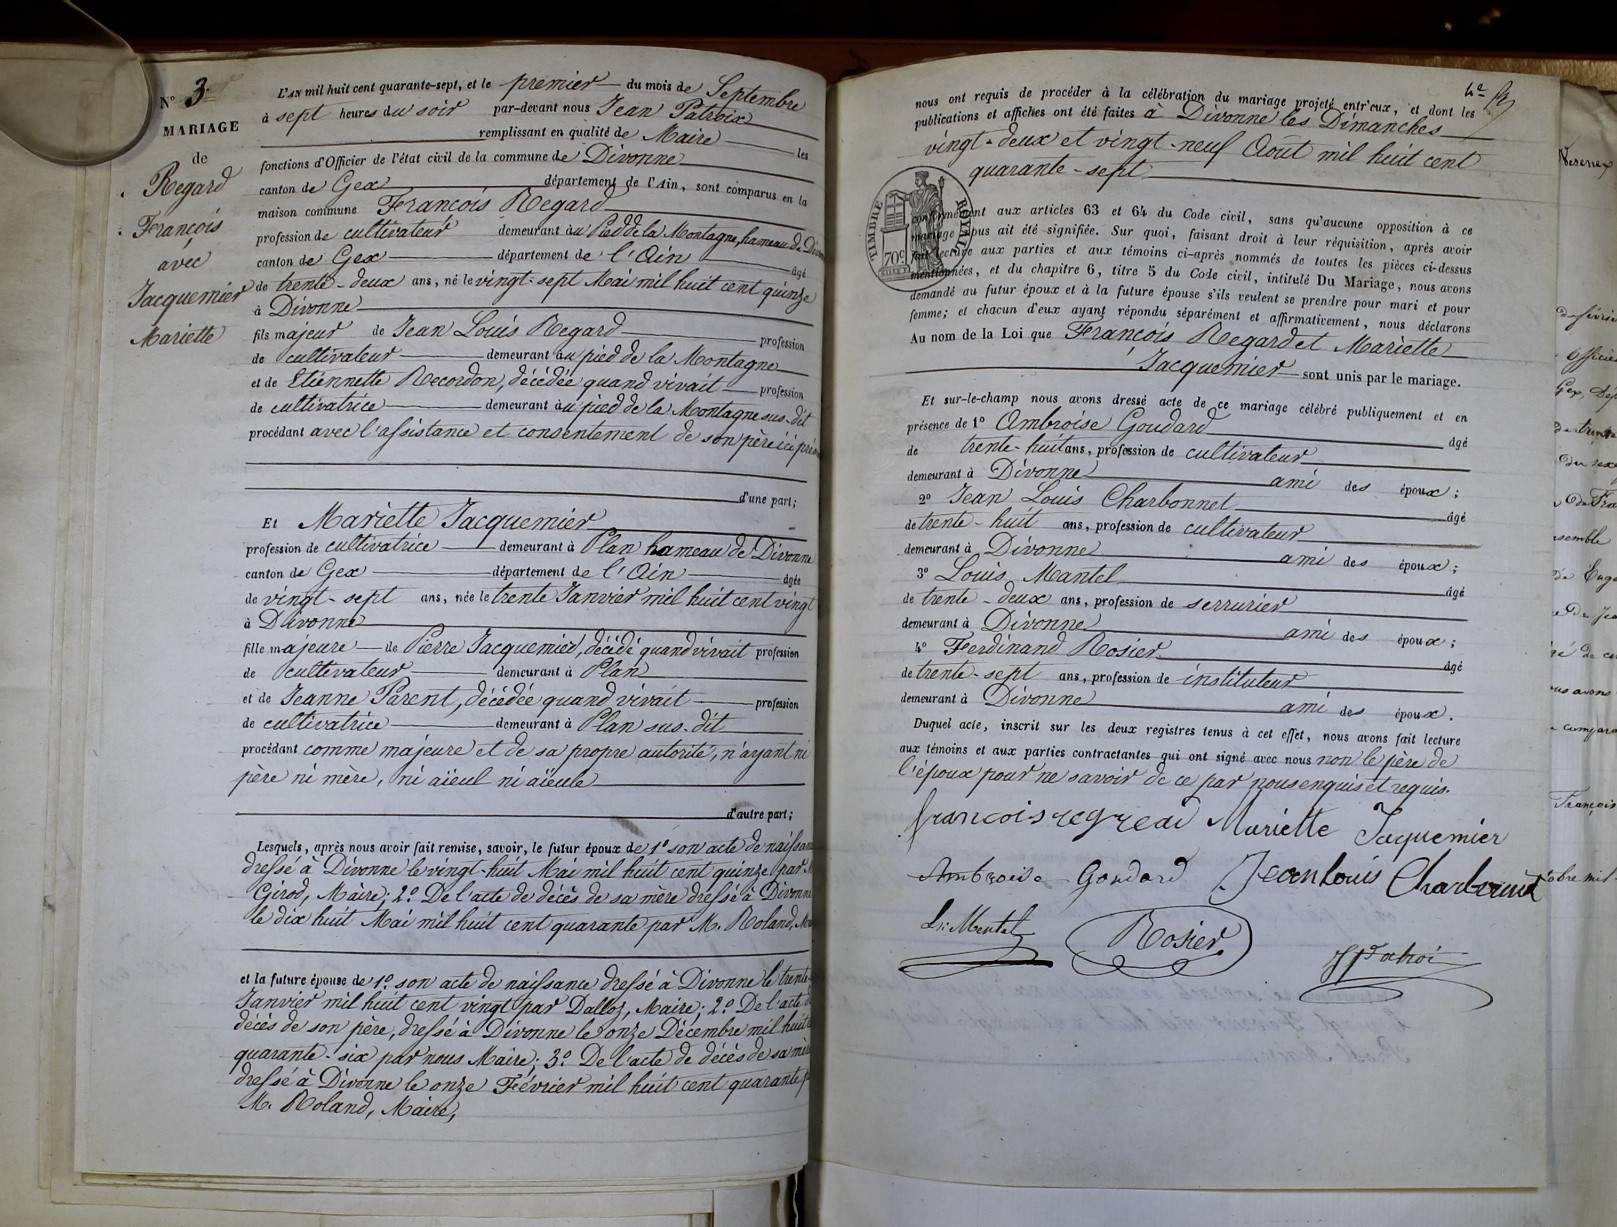 N° 3.
MARIAGE
de
Regard
François
avec
Jacquemier
Mariette
L'AN mil huit cent quarante-sept, et le premier du mois de Septembre
à sept heures du soir par-devant nous Jean Patroix
remplissant en qualité de Maire les
fonctions d'Officier de l'état civil de la commune de Divonne
canton de Gex département de l'Ain, sont comparus en la
maison commune François Regard
profession de cultivateur demeurant au Pied de la Montagne, hameau de
canton de Gex département de l'Ain âgé
de trente-deux ans, né le vingt-sept Mai mil huit cent quinze
à Divonne
fils majeur de Jean Louis Regard profession
de cultivateur demeurant au pied de la Montagne
et de Etiennette Recordon, décédée quand vivait profession
de cultivatrice demeurant au pied de la Montagne sus-dit
procédant avec l'assistance et consentement de son père ici
d'une part;
Et Mariette Jacquemier
profession de cultivatrice demeurant à Plan hameau de Divonne
canton de Gex département de l'Ain âgée
de vingt-sept ans, née le trente Janvier mil huit cent vingt
à Divonne
fille majeure de Pierre Jacquemier, décédé quand vivait profession
de cultivateur demeurant à Plan
et de Jeanne Parent, décédée quand vivait profession
de cultivatrice demeurant à Plan sus-dit
procédant comme majeure et de sa propre autorité, n'ayant ni
père ni mère, ni aïeul ni aïeule
d'autre part;
Lesquels, après nous avoir fait remise, savoir, le futur époux de 1° son acte de
dressé à Divonne le vingt-huit Mai mil huit cent quinze par
Girod, Maire; 2° De l'acte de décès de sa mère dressé à Divonne
le dix huit Mai mil huit cent quarante par M. Roland,
et la future épouse de 1° son acte de naissance dressé à Divonne le trente
Janvier mil huit cent vingt par Dalloz, Maire; 2° De l'acte de
décès de son père, dressé à Divonne le onze Décembre mil huit
quarante-six par nous Maire; 3° De l'acte de décès de sa mère
dressé à Divonne le onze Février mil huit cent quarante
M. Roland, Maire,
4e
nous ont requis de procéder à la célébration du mariage projeté entr'eux, et dont les
publications et affiches ont été faites à Divonne les Dimanches
vingt-deux et vingt-neuf Aout mil huit cent
quarante-sept
TIMBRE ROYAL
70c
conformément aux articles 63 et 64 du Code civil, sans qu'aucune opposition à ce
mariage nous ait été signifiée. Sur quoi, faisant droit à leur réquisition, après avoir
fait lecture aux parties et aux témoins ci-après nommés de toutes les pièces ci-dessus
mentionnées, et du chapitre 6, titre 5 du Code civil, intitulé Du Mariage, nous avons
demandé au futur époux et à la future épouse s'ils veulent se prendre pour mari et pour
femme; et chacun d'eux ayant répondu séparément et affirmativement, nous déclarons
Au nom de la Loi que François Regard et Mariette
Jacquemier sont unis par le mariage.
Et sur-le-champ nous avons dressé acte de ce mariage célébré publiquement et en
présence de 1° Ambroise Goudard
de trente-huit ans, profession de cultivateur âgé
demeurant à Divonne ami des époux;
2° Jean Louis Charbonnet
de trente-huit ans, profession de cultivateur âgé
demeurant à Divonne ami des époux;
3° Louis Mantel
de trente-deux ans, profession de serrurier âgé
demeurant à Divonne ami des époux;
4° Ferdinand Rosier
de trente-sept ans, profession de instituteur âgé
demeurant à Divonne ami des époux.
Duquel acte, inscrit sur les deux registres tenus à cet effet, nous avons fait lecture
aux témoins et aux parties contractantes qui ont signé avec nous non le père de
l'époux pour ne savoir de ce par nous enquis et requis.
Mariette Jaquemier
Ambroise Goudard Jean Louis Charbonnet
Ls Mentel Rosier